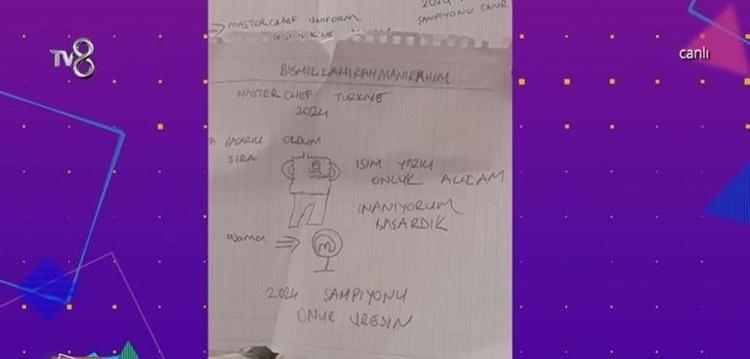 TV8
canlı
2024
→ MASTERCHEF UNIFORM
ŞAMPİYONU ONUR
BISMILLAHIRAHMANIRAHIM
MASTER CHEF TURKIYE
2024
BAŞARILI OLDUM
SIRA
ISIM YAZILI
ONLUK ALICAM
INANIYORUM
BAŞARDIK
M
2024 ŞAMPİYONU
ONUR URESIN